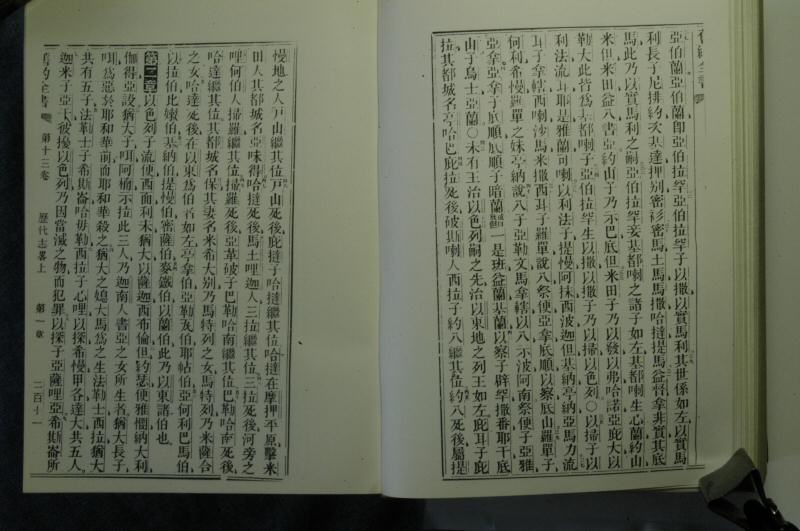 舊約全書
亞伯蘭亞伯蘭卽亞伯拉罕亞伯拉罕子以撒以實馬利其世係如左以實馬
利長子尼排約次基達押別密衫密馬土馬馬撒哈撻提馬益督拿非實其底
馬此乃以實馬利之嗣亞伯拉罕妾基都喇之諸子如左基都喇生心蘭約山
米但米田益八書亞約山子乃示巴底但米田子乃以發以弗哈諾亞庇大以
勒大此皆爲基都喇子亞伯拉罕生以撒以撒子乃以掃以色列○以掃子以
利法流耳耶是雅蘭可喇以利法子提慢阿抹西波迦但基納亭納亞馬力流
耳子拿轄西喇沙馬米撒西耳子羅單說八子亞勒文馬拿轄以八示波阿南祭便子亞雅
何利希慢羅單之妹亭納說八子
亞拿亞拿子底順底順子暗蘭 是班益蘭基蘭以察子辟罕撒番耶干底
山子烏士亞蘭○未有王治以色列嗣之先治以東地之列王如左庇耳子庇
拉其都城名亭哈巴庇拉死後破斯喇人西拉子約八繼其位約八死後屬提
慢地之人戶山繼其位戶山死後庇撻子哈撻繼其位哈撻在摩押平原擊米
田人其都城名亞味得哈撻死後馬土哩迦人三拉繼其位三拉死後河旁之
哩何伯人掃羅繼其位掃羅死後亞革破子巴勒哈南繼其位巴勒哈南死後
哈達繼其位其都城名保其妻名米希大別乃馬特列之女馬特列乃米薩合
之女哈達死後在以東爲伯者如左亭拿伯亞勒瓦伯耶帖伯亞何利巴馬伯
以拉伯比嫩伯基納伯提慢伯密薩伯麥鐵伯以蘭伯此乃以東諸伯也
第二章以色列子流便西面利未猶大以薩迦西布倫但約瑟便雅憫納大利
伽得亞設猶大子咡阿楠示拉此三人乃迦南人書亞之女所生者猶大長子
咡爲惡於耶和華前而耶和華殺之猶大之媳大馬爲之生法勒士西拉猶大
共有五子法勒士子希斯崙哈毋勒西拉子心哩以探希慢甲各達大共五人
迦米子亞干被擾以色列乃因當滅之物而犯罪以探子亞薩哩亞希斯崙所
舊約全書 第十三卷 歷代志畧上 第一章 二百十一